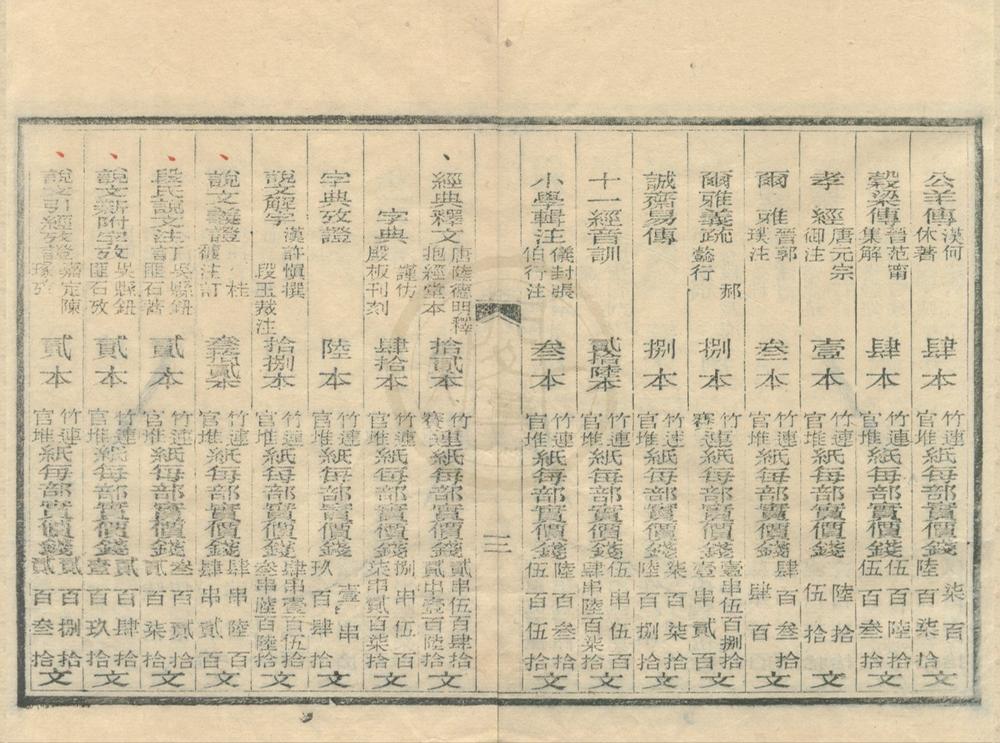 公羊傳 漢何休著 肆本 竹連官堆紙每部實價錢 柒百 陸百柒拾文
穀梁傳 晉范甯集解 肆本 竹連官堆紙每部實價錢 伍百陸拾 伍百叁拾文
孝經 唐元宗御注 壹本 竹連官堆紙每部實價錢 陸拾 伍拾文
爾雅 晉郭璞注 叁本 竹連官堆紙每部實價錢 肆百叁拾 肆百文
爾雅義疏 郝懿行 捌本 竹賽連紙每部實價錢 壹串伍百捌拾 壹串貳百文
誠齋易傳 捌本 竹連官堆紙每部實價錢 柒百柒拾 陸百捌拾文
十一經音訓 貳拾陸本 竹連官堆紙每部實價錢 伍串伍百 肆串陸百柒拾文
小學輯注 儀封張伯行注 叁本 竹連官堆紙每部實價錢 陸百叁拾 伍百伍拾文
三
經典釋文 唐陸德明釋抱經堂本 拾貳本 竹賽連紙每部實價錢 貳串伍百肆拾 貳串壹百陸拾文
字典 謹仿殿板刊刻 肆拾本 竹連官堆紙每部實價錢 捌串伍百 柒串貳百柒拾文
字典攷證 陸本 竹連官堆紙每部實價錢 壹串 玖百肆拾文
說文解字 漢許慎撰段玉裁注 拾捌本 竹連官堆紙每部實價錢 肆串壹百伍拾 叁串陸百陸拾文
說文義證 桂馥注訂 叁拾貳本 竹連官堆紙每部實價錢 肆串陸百 肆串貳百文
段氏說文注訂 吳縣鈕匪石著 貳本 竹連官堆紙每部實價錢 叁百貳拾 貳百柒拾文
說文新附字攷 吳縣鈕匪石攷 貳本 竹連官堆紙每部實價錢 貳百肆拾 壹百玖拾文
說文引經攷證 嘉定陳瑑攷 貳本 竹連官堆紙每部實價錢 貳百捌拾 貳百叁拾文